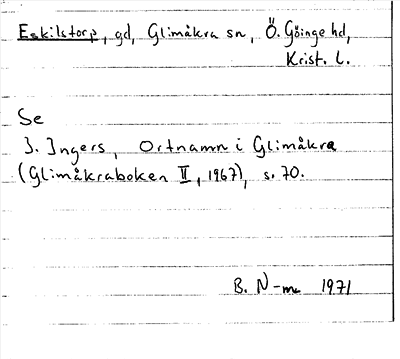 Eskilstorp, gd, Glimåkra sn, Ö. Göinge hd,
Krist. l.
Se
I. Ingers, Ortnamn i Glimåkra
(Glimåkraboken II, 1967), s. 70.
B. N-m 1971